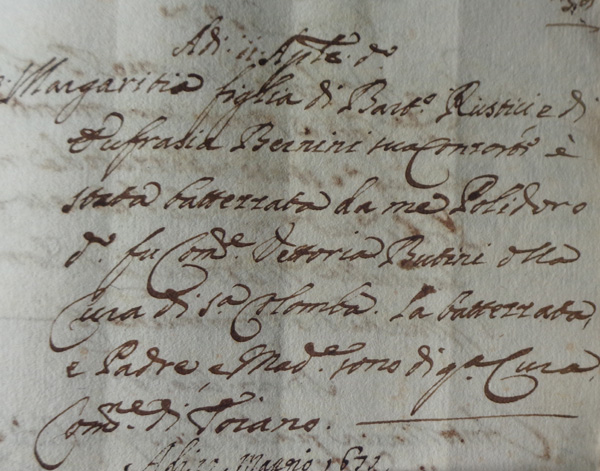 Adi. ii. Aple. do
Margaritia figlia di Barto. Rustici e di
Eufrasia Bernini sua Consorte è
stata battezzata da me Polidoro
do. fu Come. Vettoria Butini della
Cura di Sa. Colomba. La battezzata,
e Padre, e Made. sono di qa. Cura
Comne. di Toiano.
Adi 22. Maggio 1672.